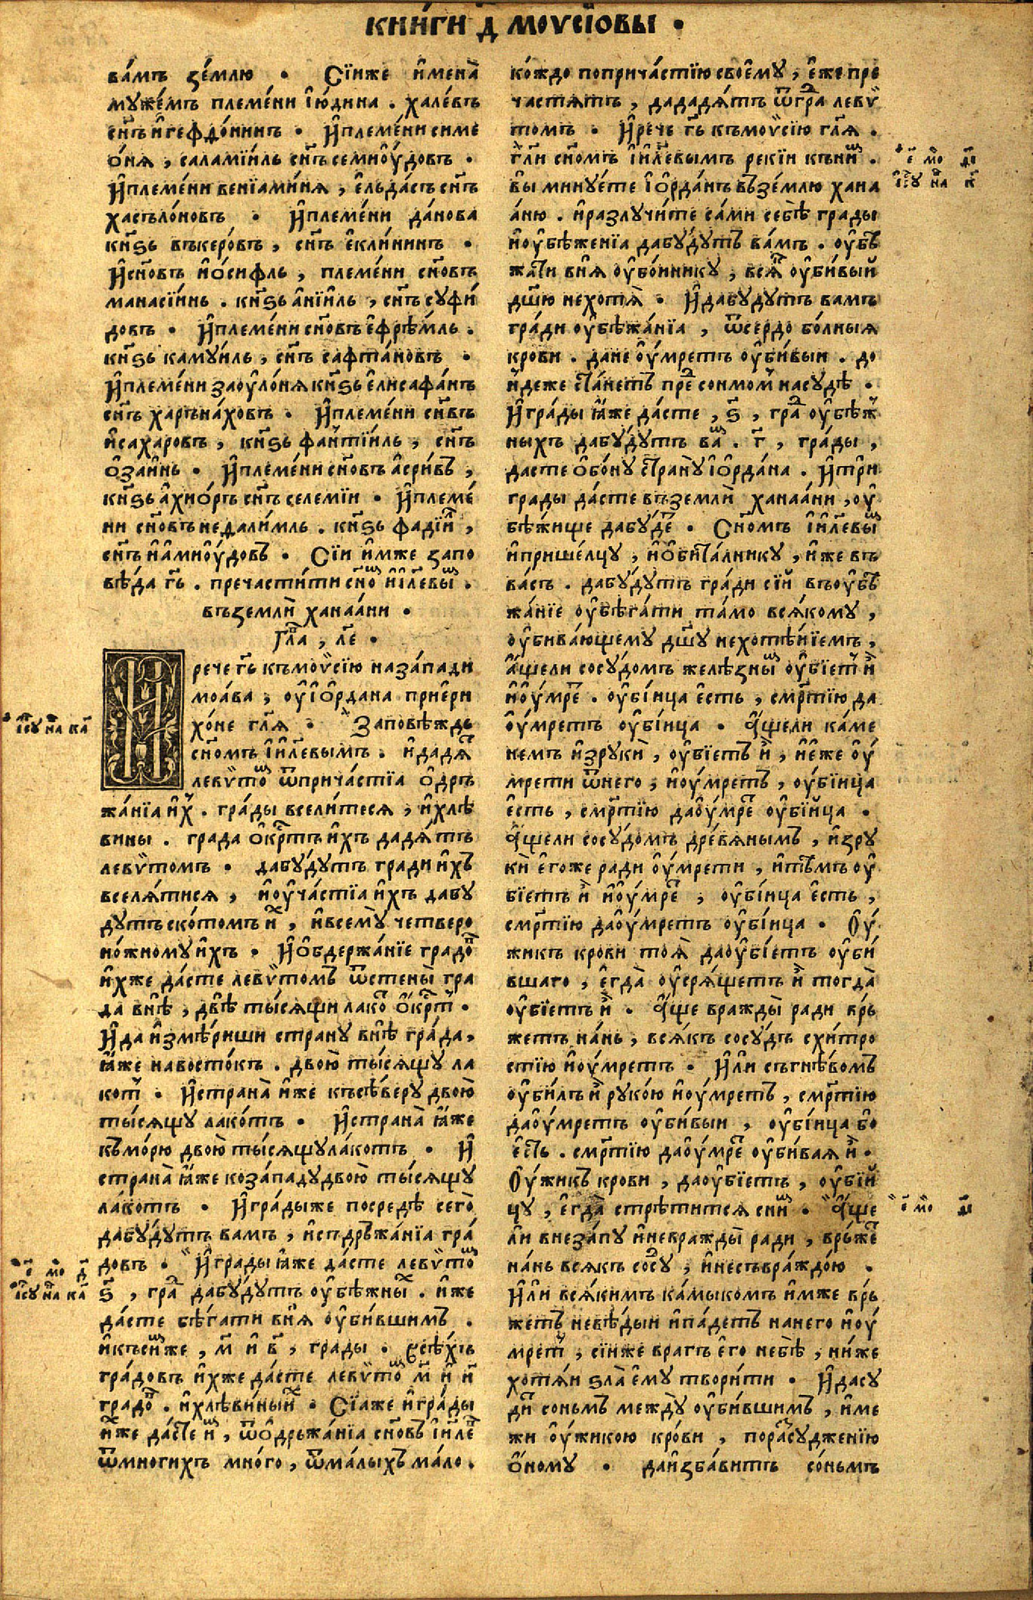 КНИ́ГИ Д҃ МОѴСІ́ОВЫ ·
ва́мъ зе́млю · Сїи́же и҆мена̀
муже́мъ племе́ни і҆ю́дина . хале́въ
сн҃ъ и҆гефдо́ннинъ · И҆племе́ни симе
о́ня , саламїи́ль сн҃ъ семиоу́довъ ·
И҆племе́ни венїами́ня , є҆льда́съ сн҃ъ
хасъло́новъ · И҆племе́ни да́нова
кн҃ѕь въкеро́въ , сн҃ъ є҆кли́нинъ ·
И҆сн҃овъ и҆о́сифль , племе́ни сн҃овъ
манасїи́нь . кн҃ѕь а҆нїи́ль , сн҃ъ суфи́
довъ · И҆племе́ни сн҃овъ є҆фре́мль .
кн҃ѕь камуи́ль , сн҃ъ сафта́новъ ·
И҆племе́ни заоуло́ня кн҃ѕь є҆лисафа́нъ
сн҃ъ харъна́ховъ · И҆племе́ни сн҃въ
и҆саха́ровъ , кн҃ѕь фалтїи́ль , сн҃ъ
о҆заи́нь · И҆племе́ни сн҃овъ а҆си́ровъ ,
кн҃ѕь а҆хио́ръ сн҃ъ селемі́и · И҆племе́
ни сн҃овъ нефали́мль . кн҃ѕь фадїи́л ,
сн҃ъ и҆а҆миоу́довъ · Сїи и҆́мже запо
вѣ́да гь҃ . пречасти́ти сн҃омъ і҆и҃левымъ .
въземлѝ ханаа́ни ·
Гла҃ , ле҃ ·
И҆рече гь҃ къмоѵсі́ю назапади
моа́ва , оуі҆о҆рдана прие҆ри
хо́не гл҃я · Заповѣ́ждь
сн҃омъ і҆и҃левымъ . и҆дадя́т
левѵ́томъ ѿприча́стїа о҆дръ
жа́нїа и҆́х . гра́ды всели́тися , и҆хлѣ
вины . града о҆́крестъ и҆́хъ дадя́тъ
левѵ́томъ · дабу́дутъ гради и҆́хъ
вселя́тися , и҆оуча́стїа и҆́хъ дабу
дутъ ско́томъ и҆́х , и҆всему̀ четверо
но́жному и҆́хъ · И҆о҆бдержа́нїе градо́в
и҆́хже да́сте левѵ́томъ ѿстены̀ гра
да внѣ̀ , двѣ́ ты́сящи лако́т о҆́крест ·
И҆да и҆змѣ́риши страну внѣ̀ гра́да ,
ꙗ҆́же навосто́къ . двою̀ ты́сящу ла
кот · И҆страна̀ и҆́же къ сѣ́веру двою̀
ты́сящу лако́тъ · И҆страна̀ ꙗ҆́же
къмо́рю двою̀ ты́сящу ла́котъ · И҆
страна̀ ꙗ҆́же козападу двою̀ ты́сящу
ла́котъ · И҆гра́ды же посредѣ́ сего̀
дабу́дутъ вамъ , и҆спдръжа́нїа гра́
довъ · И҆гра́ды ꙗ҆́же да́сте левѵ́томъ
ѕ҃ , гра́д дабу́дутъ оубѣ́жных . и҆же
да́сте бѣ́гати вня̀ оуби́вшимъ .
и҆къси́мже , м҃ и҆ в҃ , гра́ды · Всѣ́хъ
гра́довъ и҆́хже да́сте левѵ́томъ м҃ и҆ и҃
градо́в . и҆хлѣ́вины и҆́х · Сїа́же и҆гра́ды
и҆́хже да́сте и҆м , ѿо҆дръжа́нїа сн҃овъ і҆и҃лев
ѿмно́гихъ мно́го , ѿма́лыхъ ма́ло .
ко́ждо поприча́стїю своему̀ , є҆́же при
частя́тъ , дададя́тъ ѿгра́д левѵ́
томъ · И҆рече гь҃ къмоѵсі́ю гл҃я .
гл҃и сн҃омъ і҆и҃левымъ рекїи къни́м .
вы мину́ете і҆о҆рда́нъ въ зе́млю хана
а́ню . и҆разлучи́те сами себѣ̀ гра́ды
и҆оубѣ́женїа дабу́дутъ ва́мъ . оубѣ̀
жати вня̀ оубо́иннику , вся́к оуби́вый
дш҃ю нехотя̀ · И҆дабу́дутъ вамъ
гра́ди оубѣжа́нїа , ѿсердо бо́лныя
крови . дане оу́мретъ оуби́выи . до
и҆деже ста́нетъ пред сонмом насудѣ̀ ·
И҆гра́ды ꙗ҆́же да́сте , ѕ҃ , гра́д оубѣ́ж
ныхъ дабу́дутъ ва́м . г҃ , гра́ды ,
дасте о҆бо́ну страну і҆о҆рда́на . и҆три
грады да́сте въземлѝ ханаа́ни , оу
бѣ́жище дабу́дет · Сн҃омъ і҆и҃левым
и҆прише́лцу , и҆о҆бита́лнику , и҆́же въ
ва́съ . дабу́дутъ гра́ди сїи́ въоубѣ
жа́нїе оубѣ́гати та́мо вся́кому ,
оубива́ющему дш҃у нехотѣ́нїемъ ,
а҆́щели сосу́домъ желѣ́зным оубїе́т и҆
и҆оу́мрет . оубі́ица є҆сть , сме́ртїю да
оу́мретъ оубі́ица · А҆́щели ка́ме
немъ и҆зрукѝ , оубїе́тъ и҆̀ , и҆́мже оу́
мрети ѿнего , и҆оу́мретъ , оубі́ица
є҆́сть , сме́ртїю даоу́мрет оубі́ица ·
А҆́щели сосу́домъ древя́нымъ , и҆зру
кѝ є҆го́же ради оу́мрети , и҆тѣ́мъ оу
бїе́тъ и҆̀ и҆оу́мрет , оубі́ица є҆́сть ,
сме́ртїю даоу́мретъ оубі́ица · Оу́
жикъ крови тоя̀ даоубїе́тъ оуби́
вшаго , є҆гда̀ оусря́щетъ и҆̀ тогда̀
оубїе́тъ и҆̀ · А҆́ще вражды̀ ради връ
жетъ на́нь , вся́къ сосу́дъ схи́тро
стїю и҆оу́мретъ · И҆ли съгнѣ́вомъ
оуби́лъ и҆̀ руко́ю и҆оу́мретъ , сме́ртїю
даоу́мретъ оуби́выи , оубі́ица бо
є҆́сть . сме́ртїю даоу́мрет оубива́я и҆̀ .
Оу́жикъ крови , даоубїе́тъ , оубі́й
цу , є҆гда̀ стрѣ́тится сни́м · А҆́ще
ли внеза́пу и҆невражды̀ ради , врьжет
на́нь вся́къ сосу́д , и҆несъвра́ждою ·
И҆ли вся́кимъ ка́мыкомъ и҆́мже връ
жетъ невѣ́дыи и҆па́детъ на него и҆оу
мре́тъ , сїи́же врагъ є҆го небѣ̀ , ни́же
хотя́и ѕла̀ є҆му твори́ти · И҆да су
ди́т со́ньмъ между̀ оуби́вшимъ , и҆ме
жи оу́жикою кро́ви , порасудже́нїю
о҆́ному · даи҆зба́витъ со́ньмъ